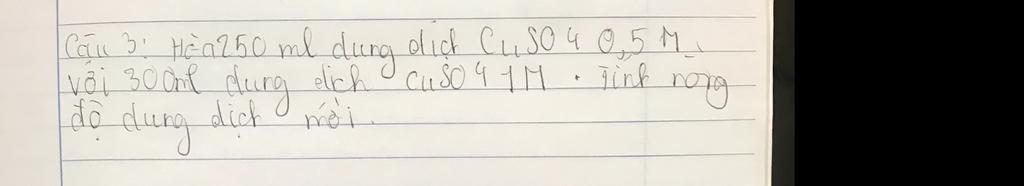 Câu 3: Hòa 250 ml dung dịch CuSO4 0,5 M
với 300ml dung dịch CuSO4 1M. Tính nồng
độ dung dịch mới.